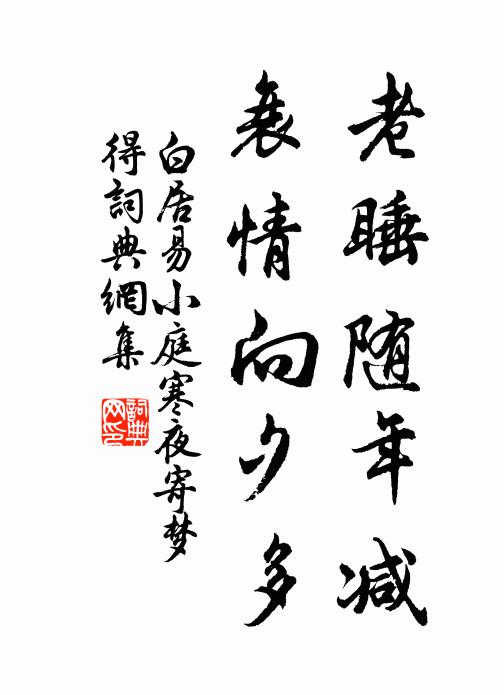 老睡随年减
衰情向夕多
白居易小庭寒夜寄梦
得詞典網集
詞典
网印